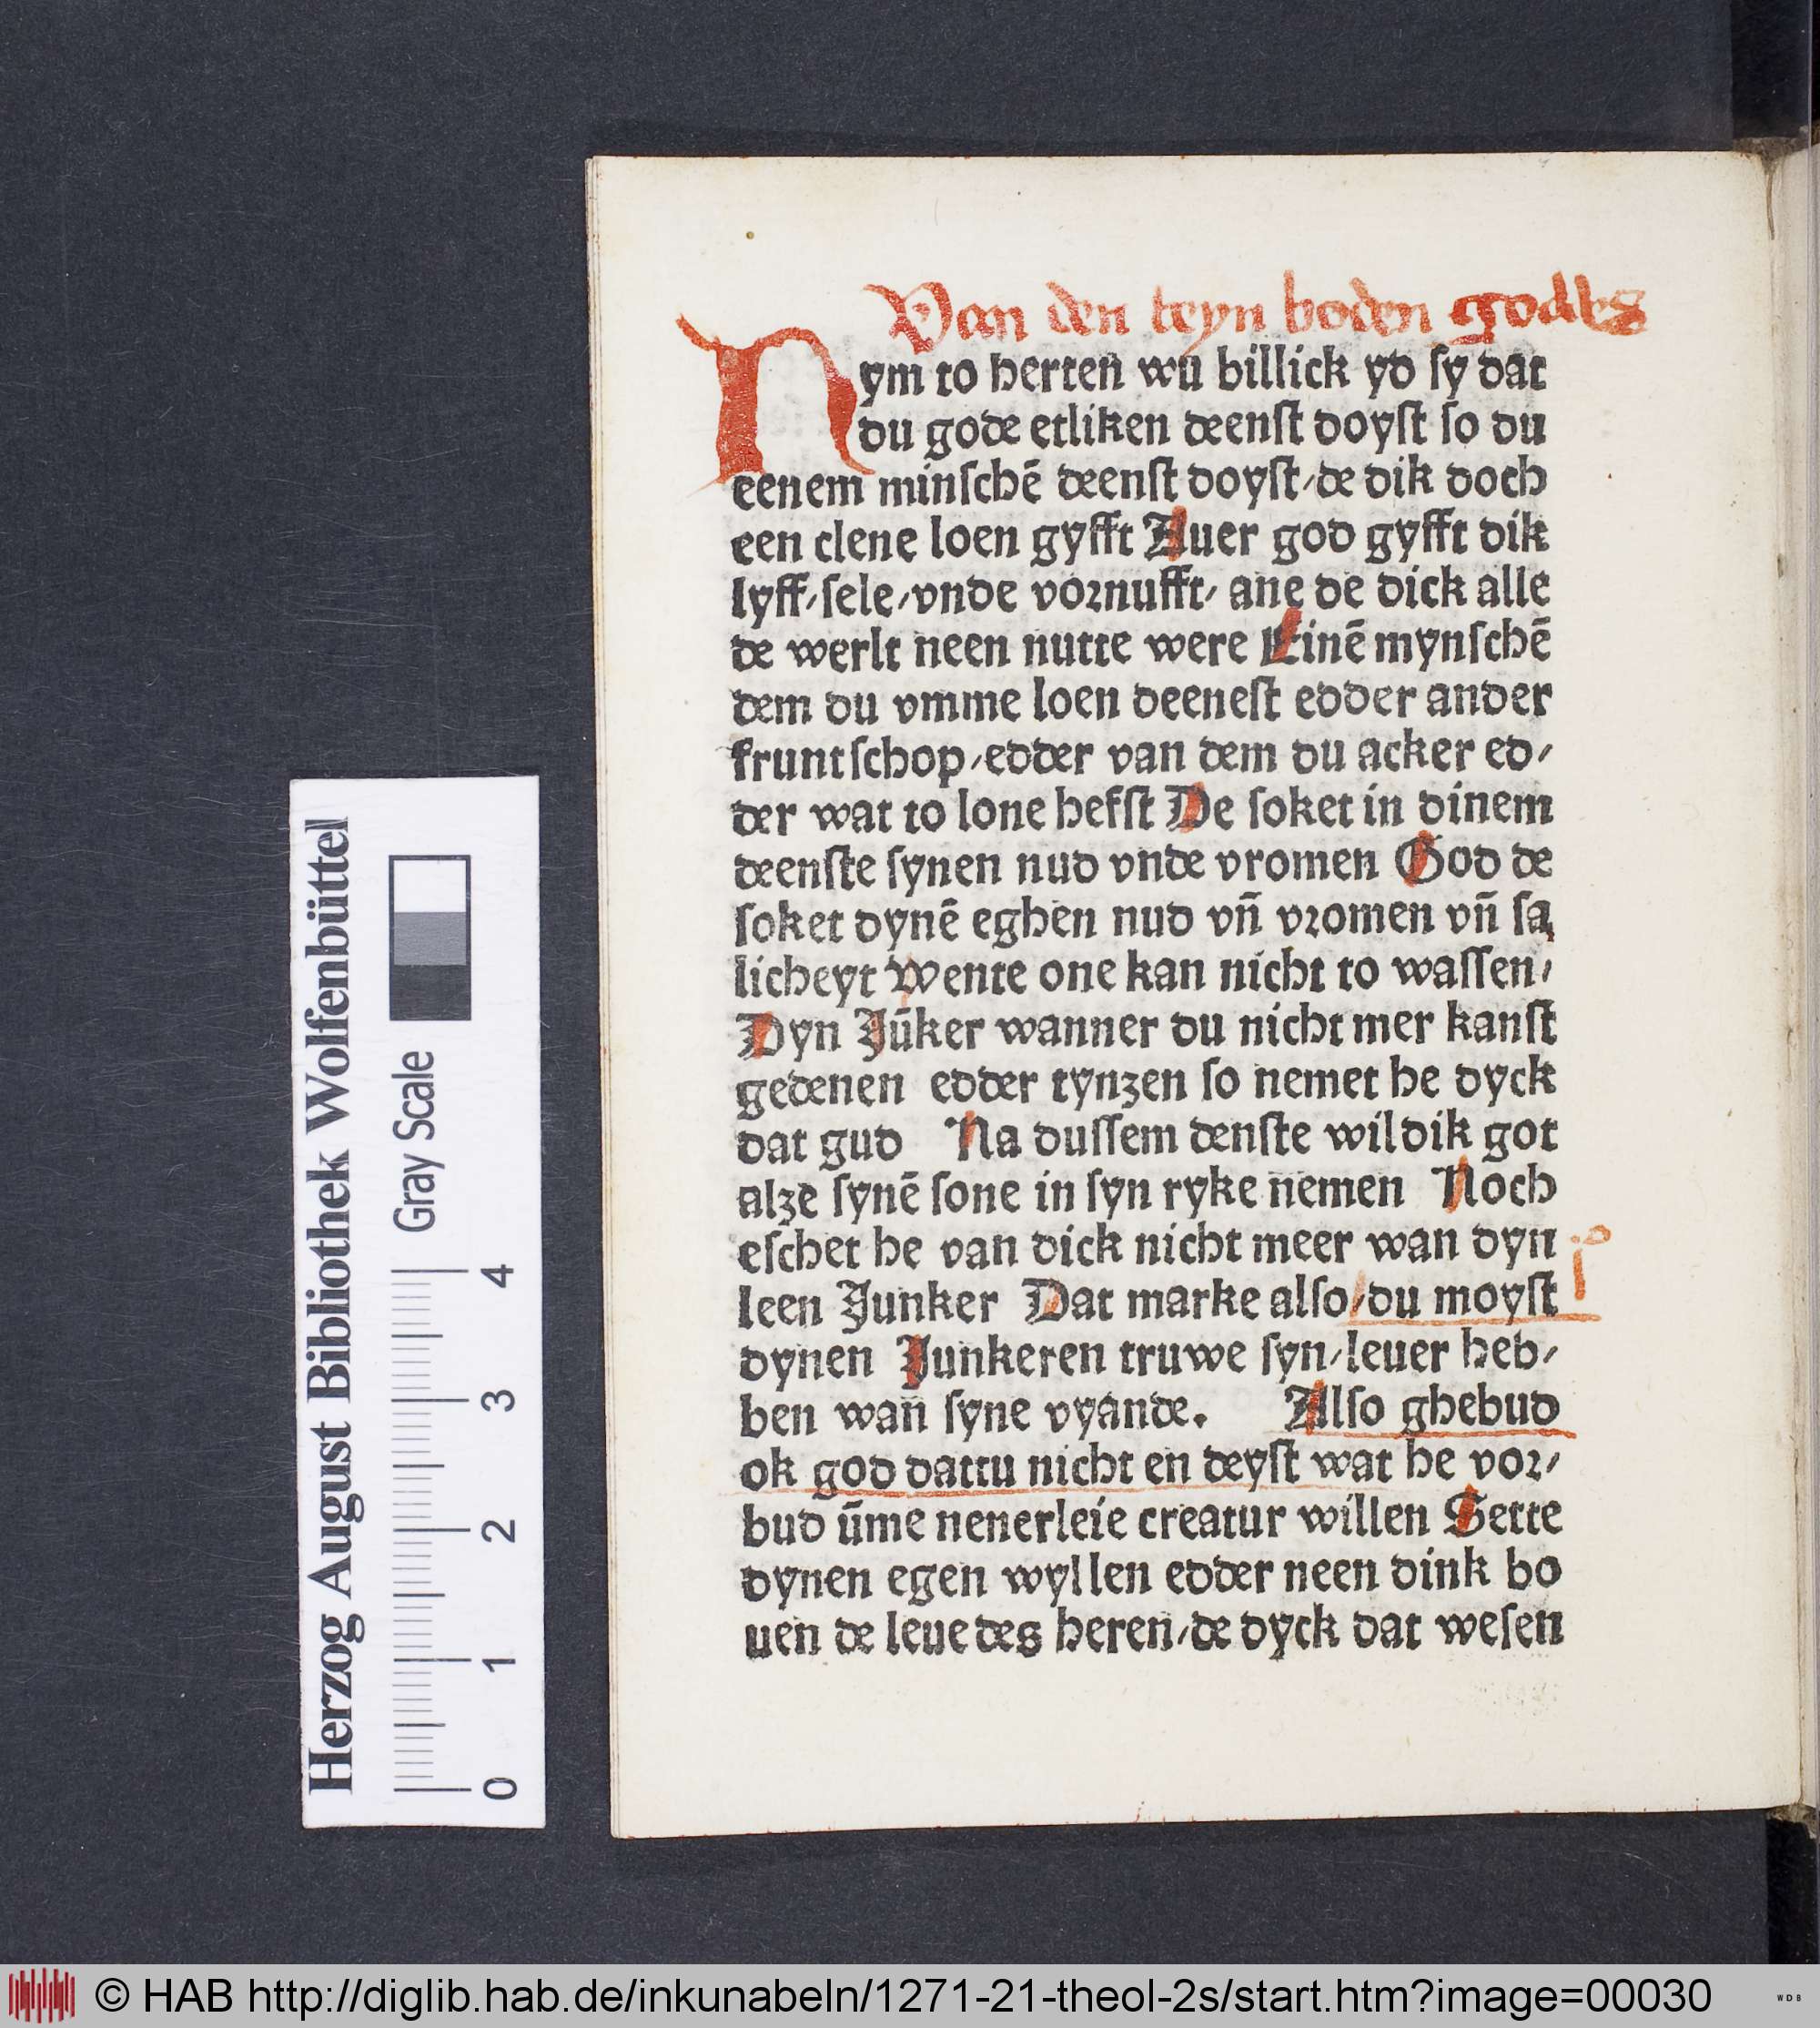 Van den teyn boden godes
Nym to herten wu billick yd ſy dat
du gode etliken deenſt doyſt ſo du
eenem minſchē deenſt doyſt/de dik doch
een clene loen gyfft Auer god gyfft dik
lyff/ſele/vnde voꝛnufft/ ane de dick alle
de werlt neen nutte were Einē mynſchē
dem du vmme loen deeneſt edder ander
fruntſchop/edder van dem du acker ed/
der wat to lone hefſt De ſoket in dinem
deenſte ſynen nud vnde vromen God de
ſoket dynē eghen nud vn̄ vꝛomen vn̄ ſa
licheyt Wente one kan nicht to waſſen/
Dyn Jūker wanner du nicht mer kanſt
gedenen edder tynzen ſo nemet he dyck
dat gud Na duſſem denſte wil dik got
alze ſynē ſone in ſyn ryke nemen Noch
eſchet he van dick nicht meer wan dyn
leen Junker Dat marke alſo/du moyſt
dynen Junkeren truwe ſyn/leuer heb/
ben wan ſyne vyande. Alſo ghebud
ok god dattu nicht en deyſt wat he voꝛ/
bud ūme nenerleie creatur willen Sette
dynen egen wyllen edder neen dink bo
uen de leue des heren/de dyck dat weſen
Herzog August Bibliothek Wolfenbüttel
Gray Scale
0 1 2 3 4
© HAB http://diglib.hab.de/inkunabeln/1271-21-theol-2s/start.htm?image=00030
WDB